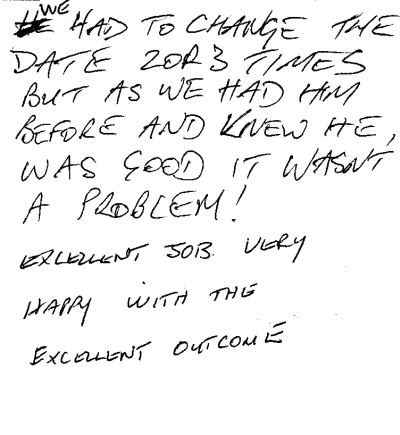 WE HAD TO CHANGE THE
DATE 2 OR 3 TIMES
BUT AS WE HAD HIM
BEFORE AND KNEW HE,
WAS GOOD IT WASN'T
A PROBLEM!
EXCELLENT JOB. VERY
HAPPY WITH THE
EXCELLENT OUTCOME